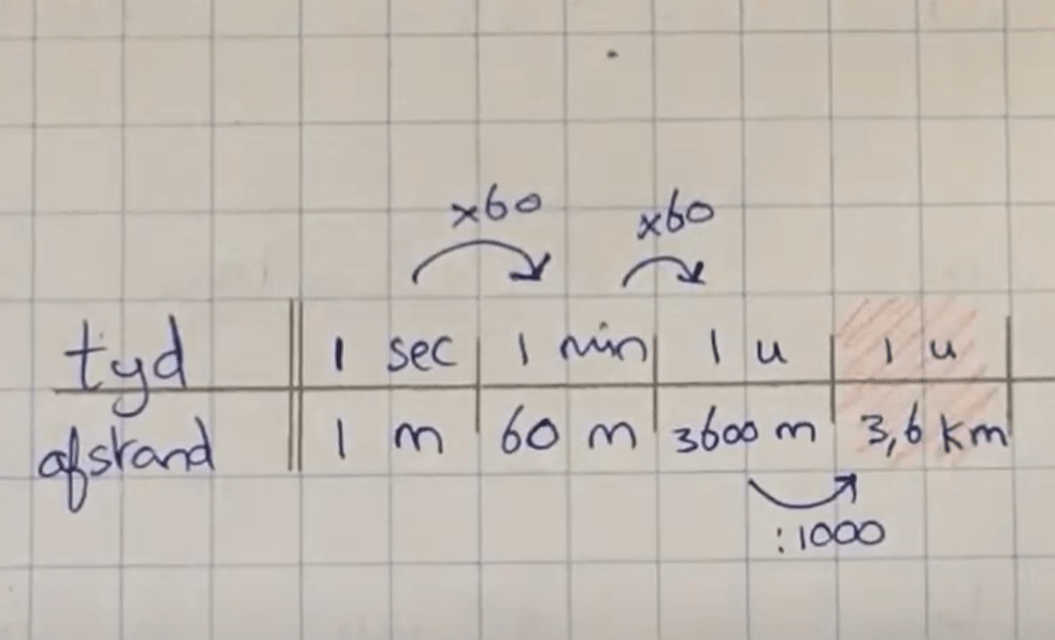 x60 x60
tijd 1 sec 1 min 1 u 1 u
afstand 1 m 60 m 3600 m 3,6 km
:1000